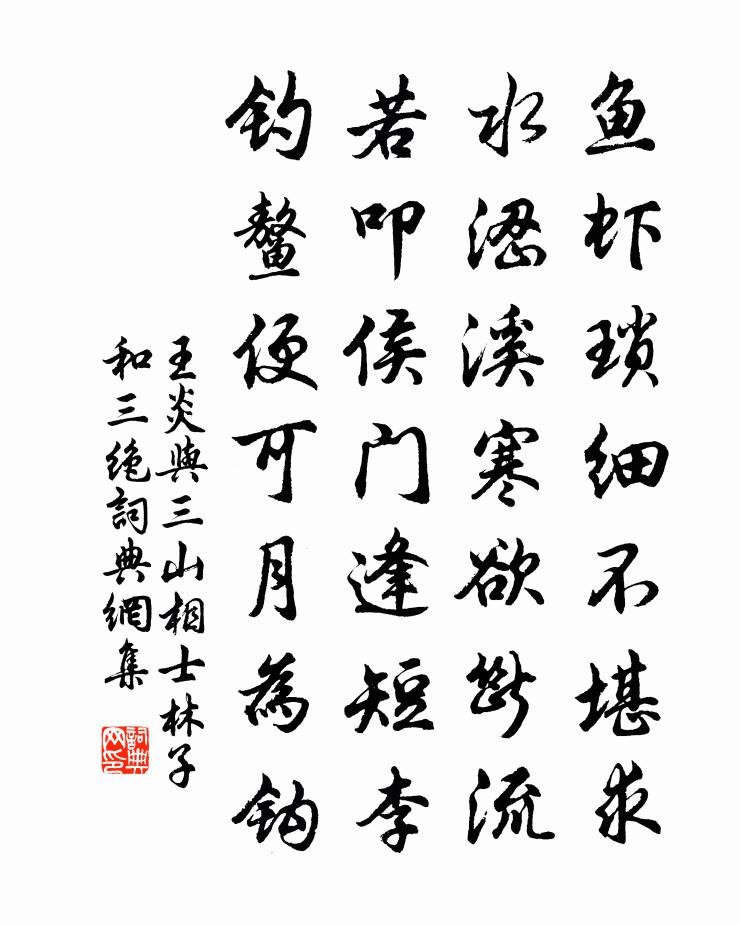 鱼虾琐细不堪求
水涩溪寒欲断流
若叩侯门逢短李
钓鳌便可月为钩
王炎与三山相士林子
和三绝词典网集
词典网印